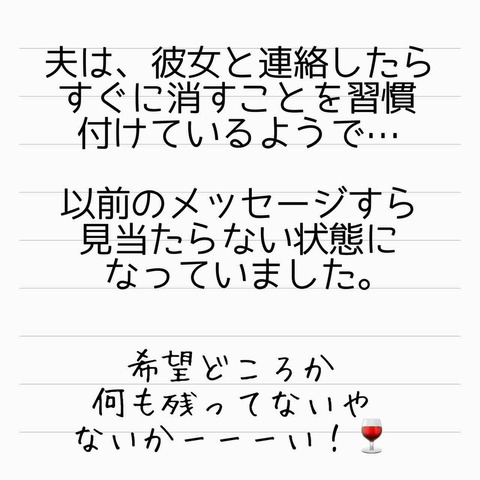 夫は、彼女と連絡したら
すぐに消すことを習慣
付けているようで…
以前のメッセージすら
見当たらない状態に
なっていました。
希望どころか
何も残ってないや
ないかーーーい！🍷